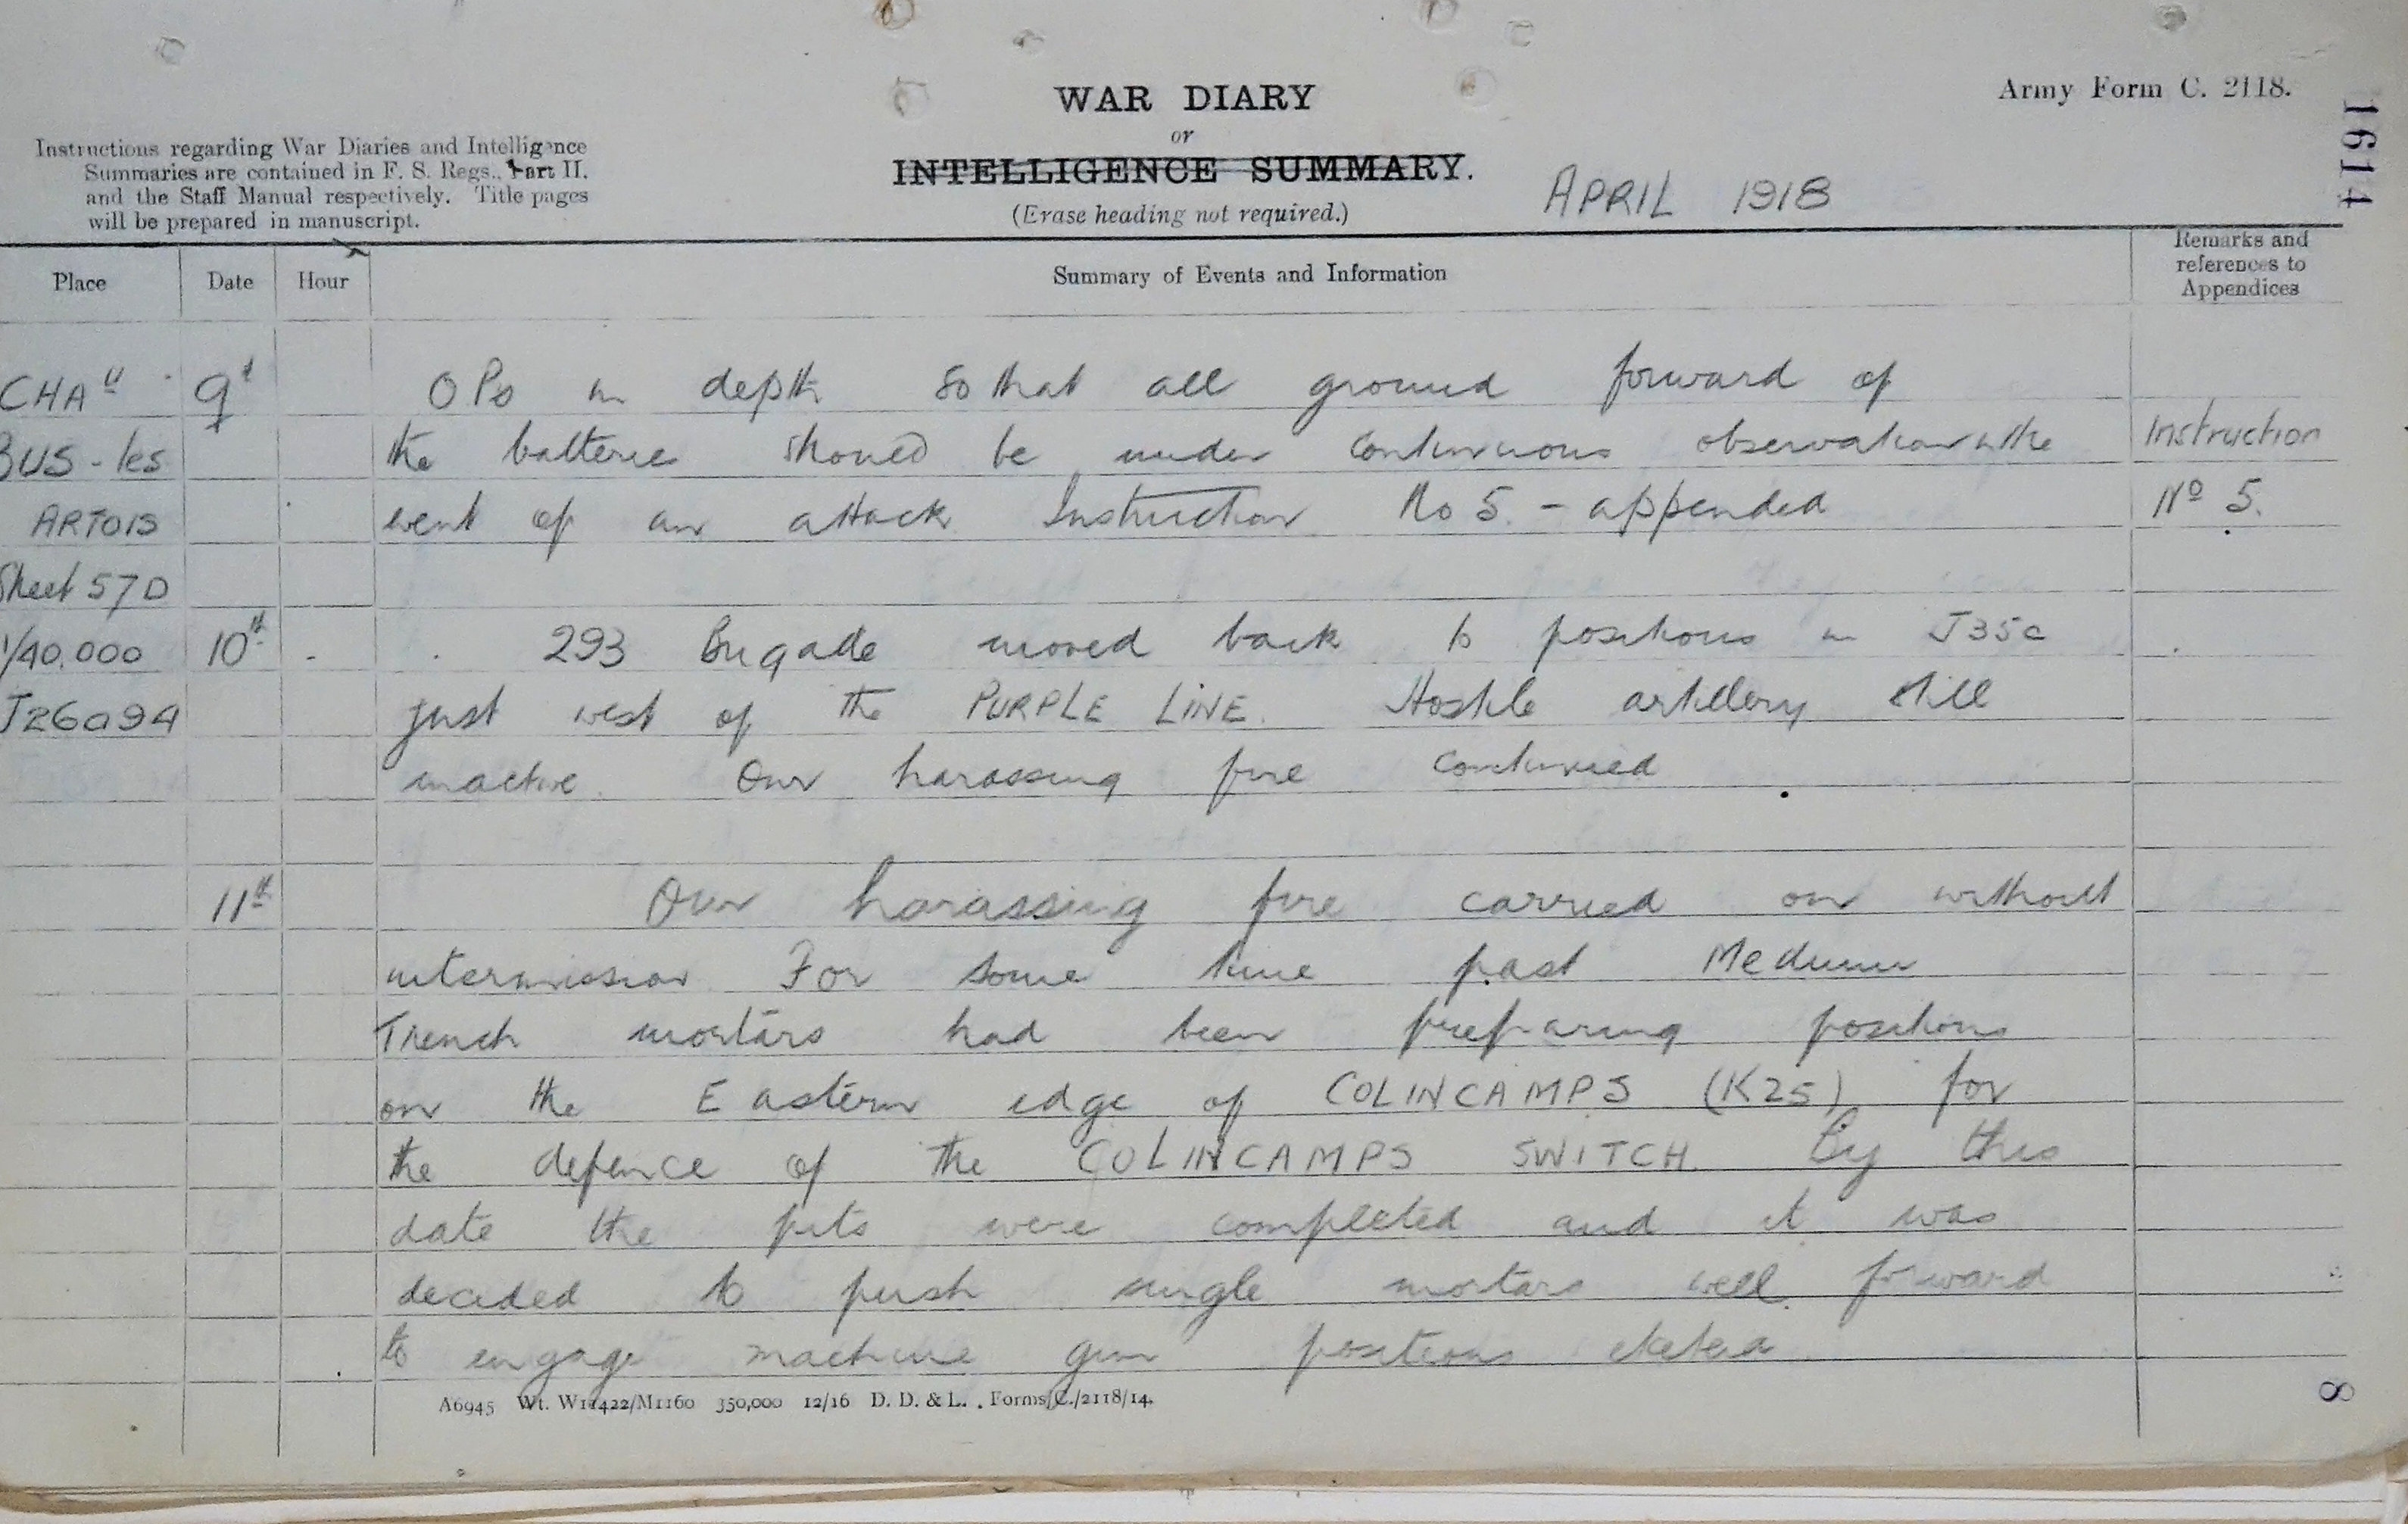 WAR DIARY
or
INTELLIGENCE SUMMARY.
(Erase heading not required.)
Army Form C. 2118.
1614
Instructions regarding War Diaries and Intelligence
Summaries are contained in F. S. Regs., Part II.
and the Staff Manual respectively. Title pages
will be prepared in manuscript.
APRIL 1918
Place Date Hour Summary of Events and Information Remarks and references to Appendices
CHAU 9th OPs in depth so that all ground forward of
BUS-les the batterie should be under continuous observation in the Instruction
ARTOIS event of an attack Instruction No 5. - appended Nº 5.
Sheet 57D
1/40.000 10th 293 Brigade moved back to positions in J35c
J26a94 just west of the PURPLE LINE. Hostile artillery still
inactive. Our harassing fire continued
11th Our harassing fire carried on without
intermission For some time past Medium
Trench mortars had been preparing positions
on the Eastern edge of COLINCAMPS (K25) for
the defence of the COLINCAMPS SWITCH. By this
date the pits were completed and it was
decided to push single mortars well forward
to engage machine gun positions etcetera
A6945 Wt. W11422/M1160 350,000 12/16 D. D. & L. Forms/C./2118/14.
8